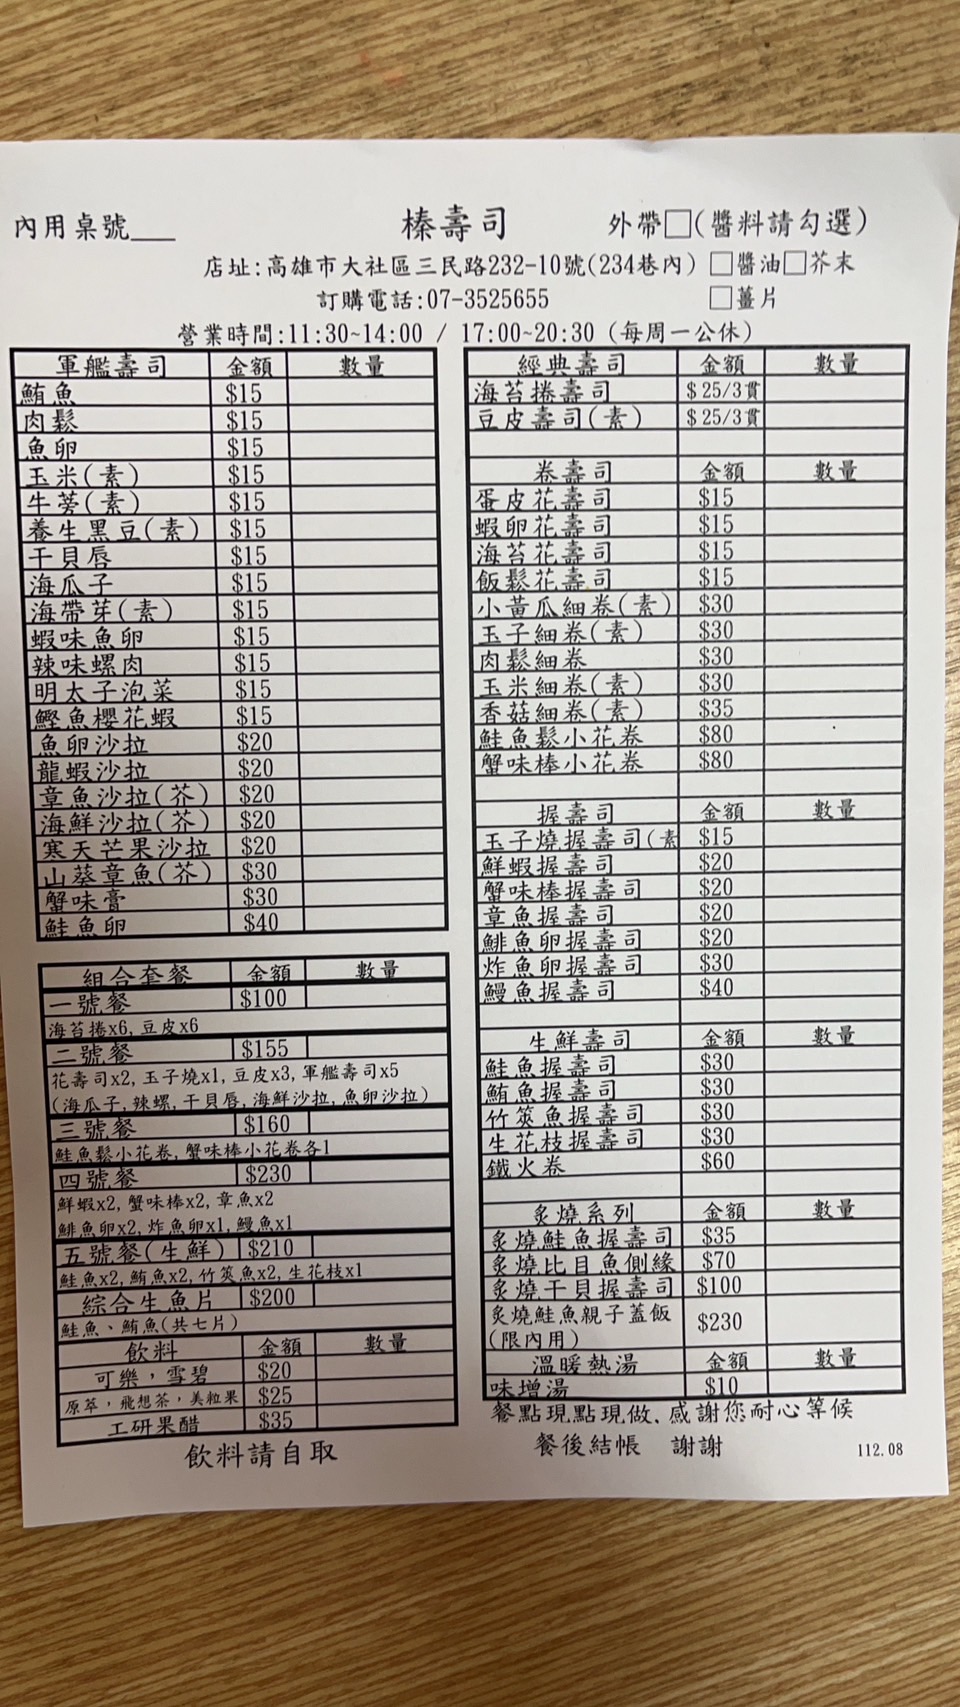 內用桌號___ 榛壽司 外帶□(醬料請勾選)
店址:高雄市大社區三民路232-10號(234巷內) □醬油□芥末
訂購電話:07-3525655 □薑片
營業時間:11:30~14:00 / 17:00~20:30 (每周一公休)
軍艦壽司 金額 數量
鮪魚 $15
肉鬆 $15
魚卵 $15
玉米(素) $15
牛蒡(素) $15
養生黑豆(素) $15
干貝唇 $15
海瓜子 $15
海帶芽(素) $15
蝦味魚卵 $15
辣味螺肉 $15
明太子泡菜 $15
鰹魚櫻花蝦 $15
魚卵沙拉 $20
龍蝦沙拉 $20
章魚沙拉(芥) $20
海鮮沙拉(芥) $20
寒天芒果沙拉 $20
山葵章魚(芥) $30
蟹味膏 $30
鮭魚卵 $40
組合套餐 金額 數量
一號餐 $100
海苔捲x6, 豆皮x6
二號餐 $155
花壽司x2, 玉子燒x1, 豆皮x3, 軍艦壽司x5
(海瓜子, 辣螺, 干貝唇, 海鮮沙拉, 魚卵沙拉)
三號餐 $160
鮭魚鬆小花卷, 蟹味棒小花卷各1
四號餐 $230
鮮蝦x2, 蟹味棒x2, 章魚x2
鯡魚卵x2, 炸魚卵x1, 鰻魚x1
五號餐(生鮮) $210
鮭魚x2, 鮪魚x2, 竹筴魚x2, 生花枝x1
綜合生魚片 $200
鮭魚、鮪魚(共七片)
飲料 金額 數量
可樂，雪碧 $20
原萃，飛想茶，美粒果 $25
工研果醋 $35
飲料請自取
經典壽司 金額 數量
海苔捲壽司 $25/3貫
豆皮壽司(素) $25/3貫
卷壽司 金額 數量
蛋皮花壽司 $15
蝦卵花壽司 $15
海苔花壽司 $15
飯鬆花壽司 $15
小黃瓜細卷(素) $30
玉子細卷(素) $30
肉鬆細卷 $30
玉米細卷(素) $30
香菇細卷(素) $35
鮭魚鬆小花卷 $80
蟹味棒小花卷 $80
握壽司 金額 數量
玉子燒握壽司(素 $15
鮮蝦握壽司 $20
蟹味棒握壽司 $20
章魚握壽司 $20
鯡魚卵握壽司 $20
炸魚卵握壽司 $30
鰻魚握壽司 $40
生鮮壽司 金額 數量
鮭魚握壽司 $30
鮪魚握壽司 $30
竹筴魚握壽司 $30
生花枝握壽司 $30
鐵火卷 $60
炙燒系列 金額 數量
炙燒鮭魚握壽司 $35
炙燒比目魚側緣 $70
炙燒干貝握壽司 $100
炙燒鮭魚親子蓋飯
(限內用) $230
溫暖熱湯 金額 數量
味增湯 $10
餐點現點現做、感謝您耐心等候
餐後結帳 謝謝 112.08